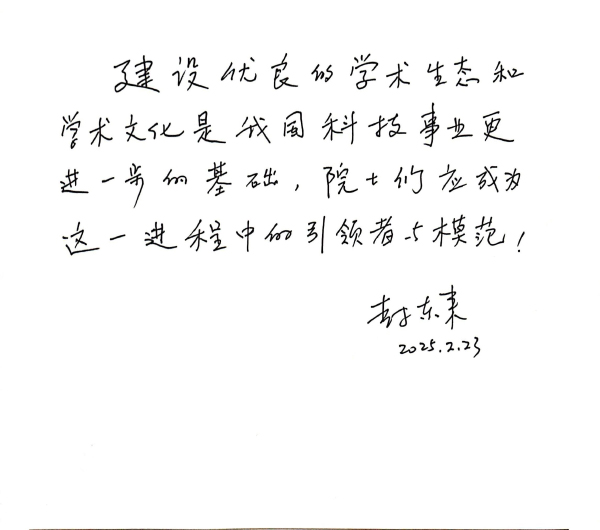 建设优良的学术生态和
学术文化是我国科技事业更
进一步的基础，院士们应成为
这一进程中的引领者与模范！
封东来
2025.2.23